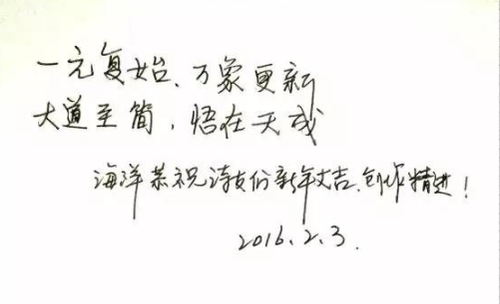 一元复始、万象更新
大道至简,悟在天成
海洋恭祝诗友们新年大吉、创作精进!
2016.2.3.